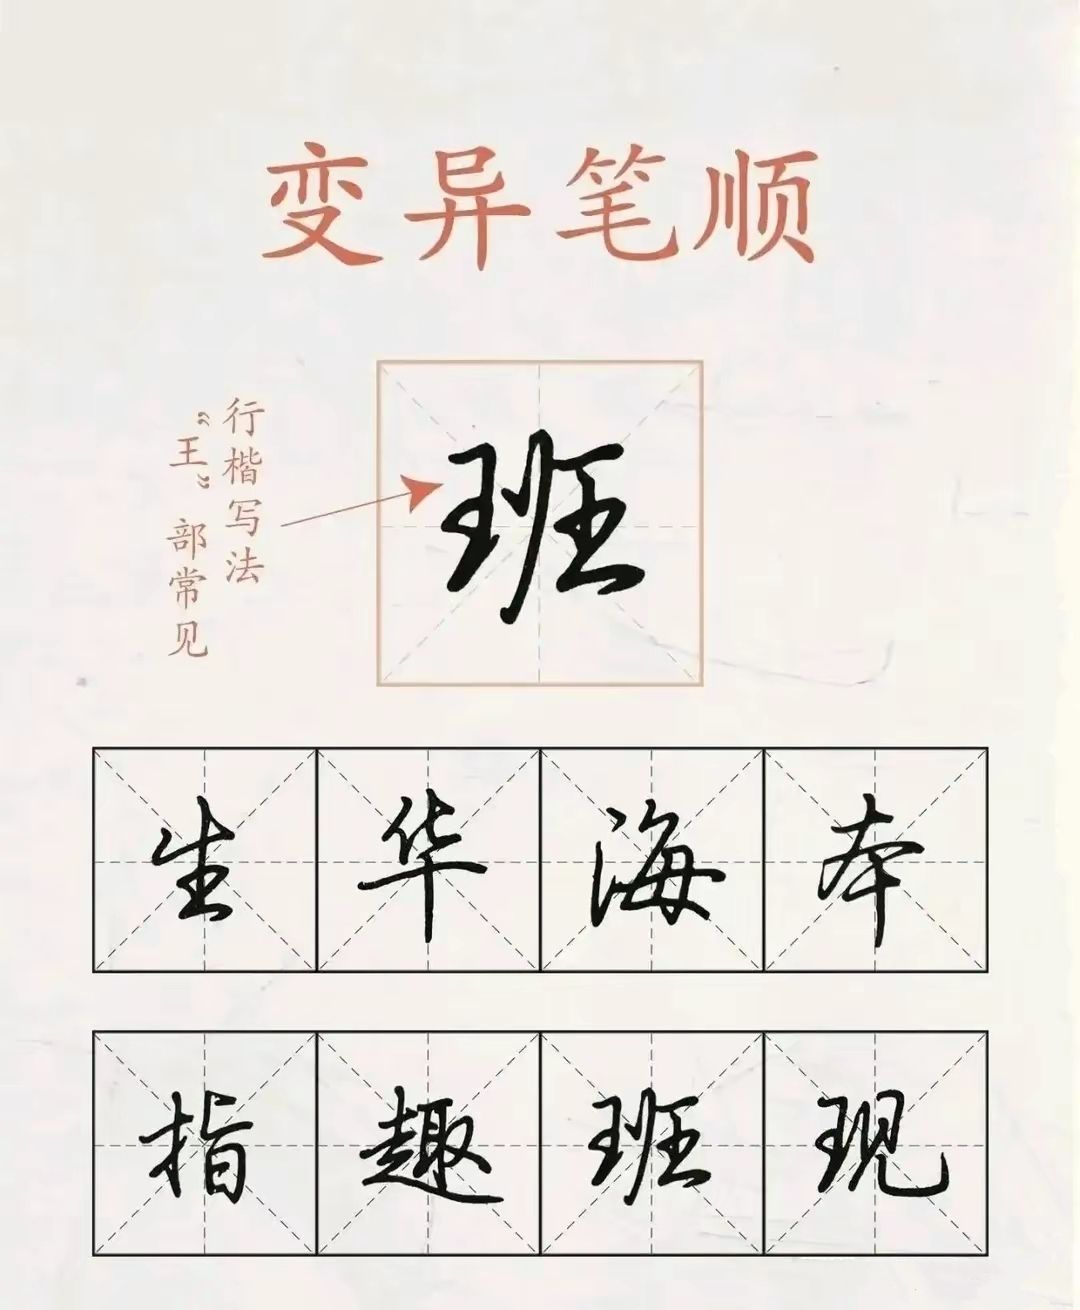 变异笔顺
行楷写法
“王”部常见
班
生华海本
指趣班现